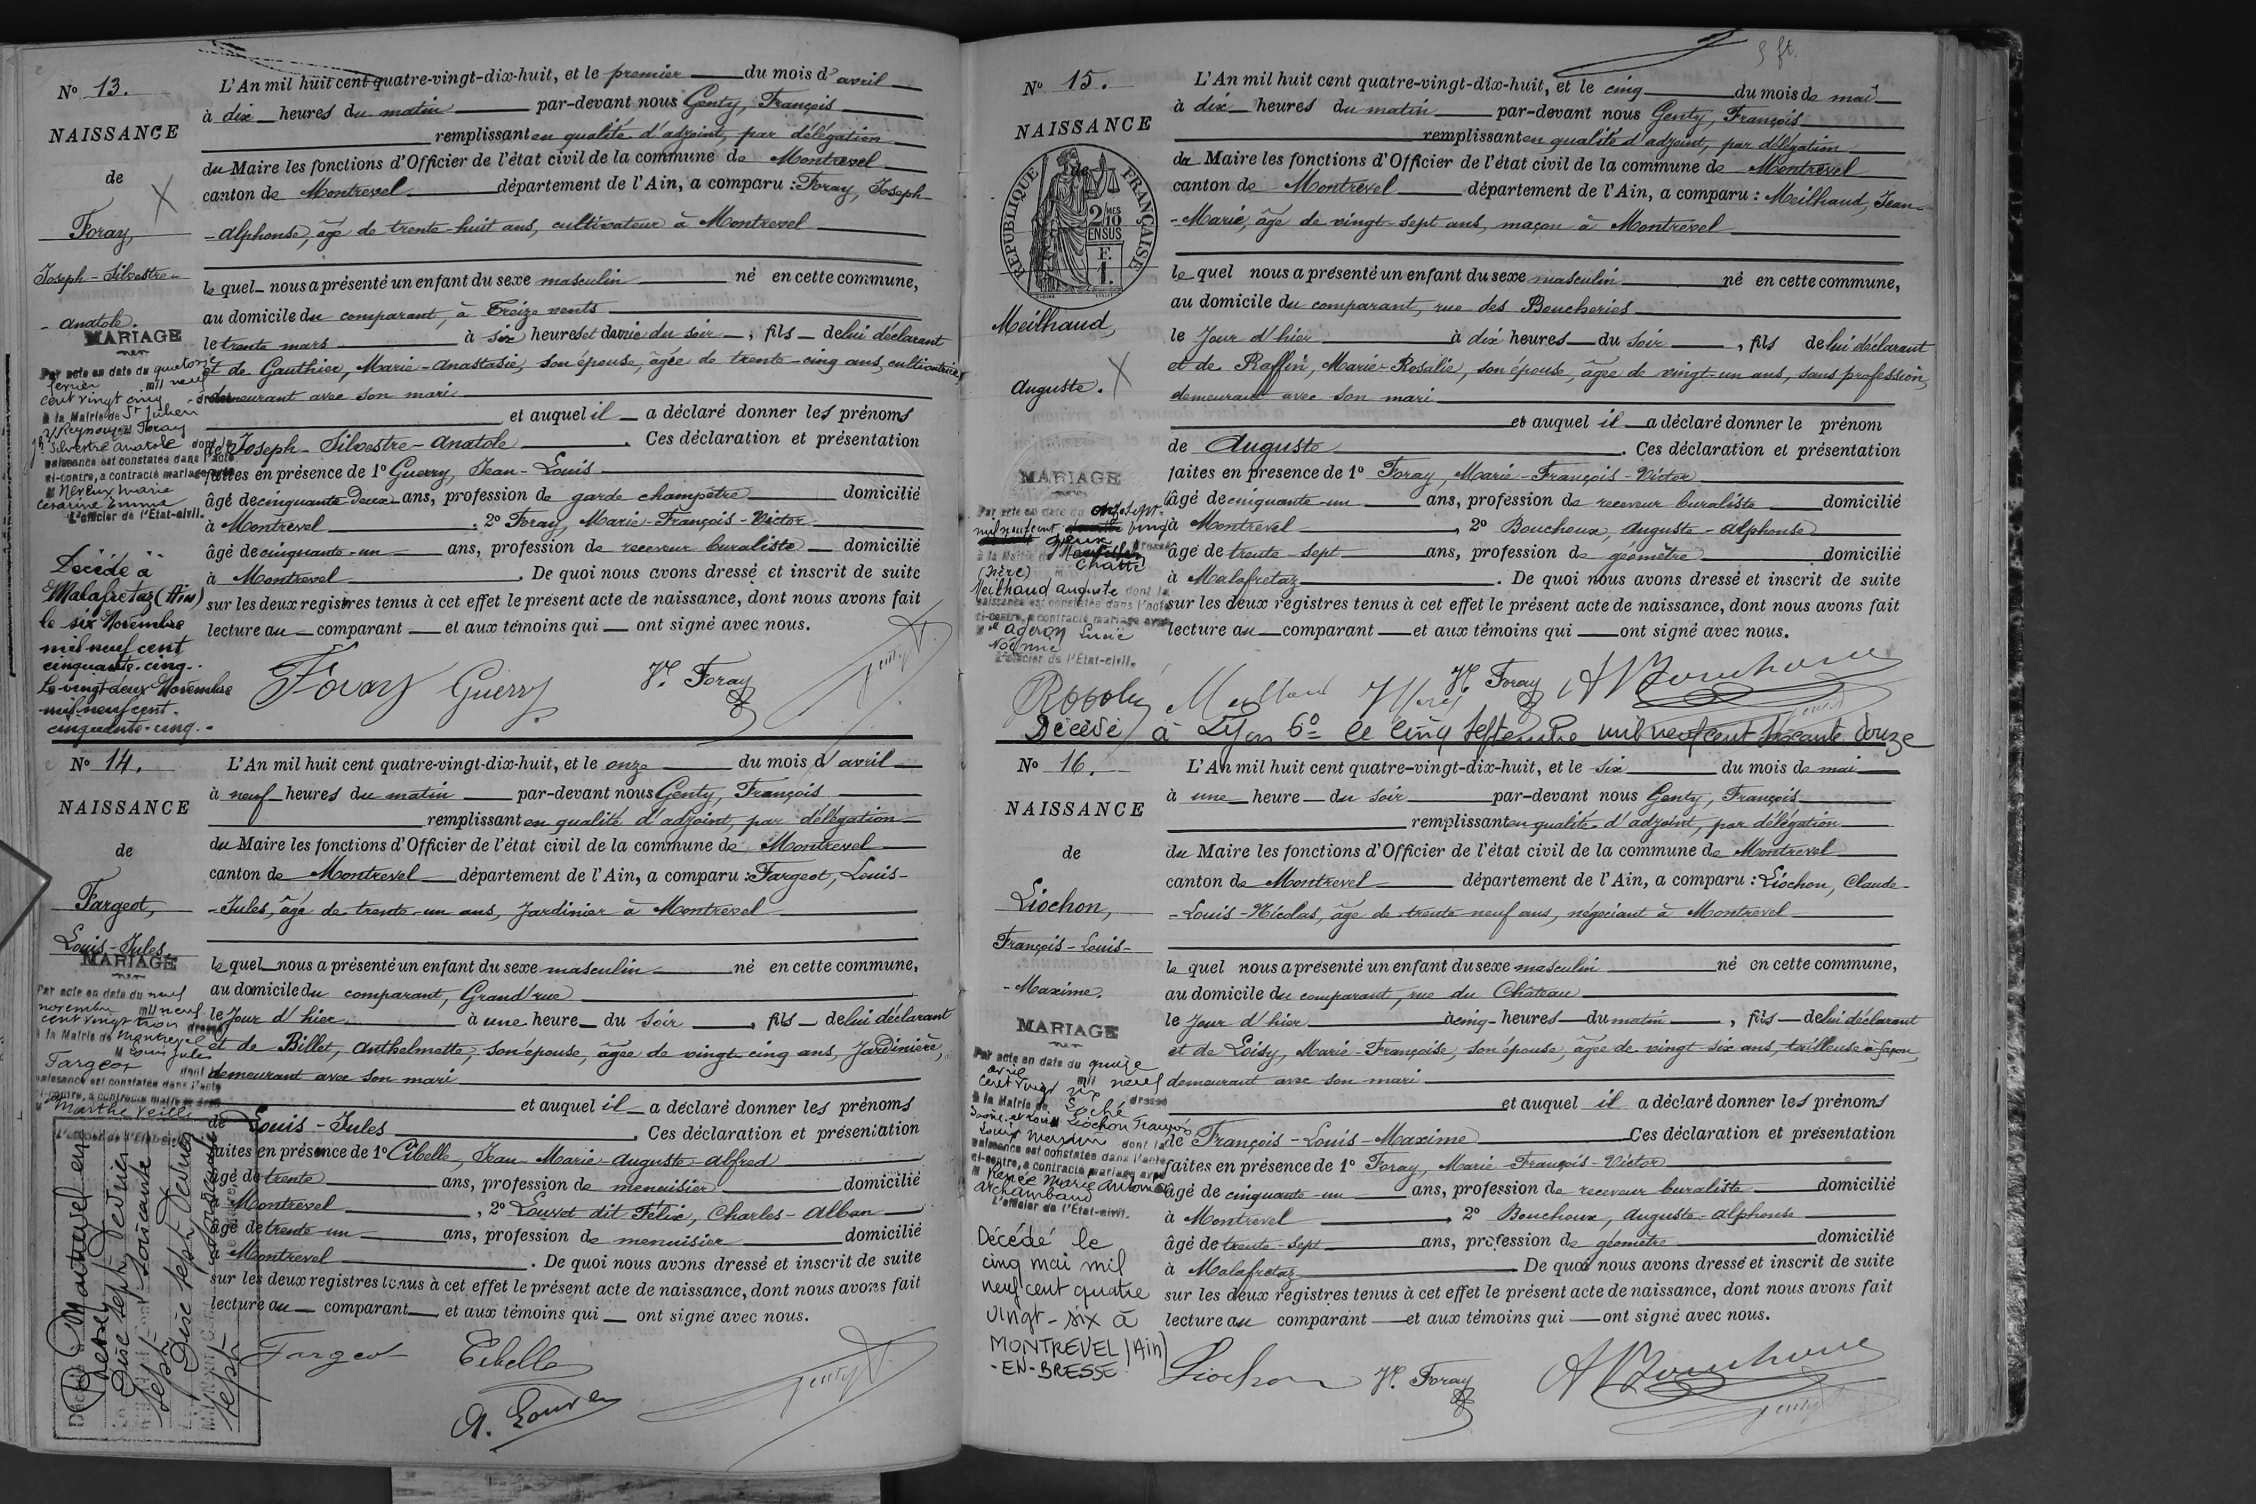 N° 13.
NAISSANCE
de
Foray,
Joseph-Silvestre-
-Anatole.
MARIAGE
Par acte en date du quatorze
février mil neuf
cent vingt cinq dressé
à la Mairie de St Julien
s/ Reyssouze M Foray
Jh Silvestre Anatole dont la
naissance est constatée dans l'acte
ci-contre, a contracté mariage avec
M Nereux Marie
Césarine Emma
L'officier de l'Etat-civil.
Décédé à
Malafretaz (Ain)
le six Novembre
mil neuf cent
cinquante-cinq.
Le vingt-deux Novembre
mil neuf cent
cinquante-cinq.
L'An mil huit cent quatre-vingt-dix-huit, et le premier du mois d'avril
à dix heures du matin par-devant nous Genty, François
remplissant en qualité d'adjoint, par délégation
du Maire les fonctions d'Officier de l'état civil de la commune de Montrevel
canton de Montrevel département de l'Ain, a comparu : Foray, Joseph-
-Alphonse, âgé de trente-huit ans, cultivateur à Montrevel
le quel nous a présenté un enfant du sexe masculin né en cette commune,
au domicile du comparant, à Treize vents
le trente mars à six heures et demie du soir, fils de lui déclarant
et de Gauthier, Marie-Anastasie, son épouse, âgée de trente-cinq ans, cultivatrice,
demeurant avec son mari
et auquel il a déclaré donner les prénoms
de Joseph-Silvestre-Anatole. Ces déclaration et présentation
faites en présence de 1° Guerry, Jean-Louis
âgé de cinquante-deux ans, profession de garde champêtre domicilié
à Montrevel, 2° Foray, Marie-François-Victor
âgé de cinquante-un ans, profession de receveur buraliste domicilié
à Montrevel. De quoi nous avons dressé et inscrit de suite
sur les deux registres tenus à cet effet le présent acte de naissance, dont nous avons fait
lecture au comparant et aux témoins qui ont signé avec nous.
Foray Guerry Vr Foray Genty F.
N° 14.
NAISSANCE
de
Fargeot,
Louis-Jules
MARIAGE
Par acte en date du neuf
novembre mil neuf
cent vingt trois dressé
à la Mairie de Montrevel
M Louis Jules
Fargeot dont la
naissance est constatée dans l'acte
ci-contre, a contracté mariage avec
M Marthe Veille
L'officier de l'Etat-civil
Décédé à Montrevel en
Bresse
Dix sept Février
Soixante
sept
Dix sept Février
sept
L'An mil huit cent quatre-vingt-dix-huit, et le onze du mois d'avril
à neuf heures du matin par-devant nous Genty, François
remplissant en qualité d'adjoint, par délégation
du Maire les fonctions d'Officier de l'état civil de la commune de Montrevel
canton de Montrevel département de l'Ain, a comparu : Fargeot, Louis-
-Jules, âgé de trente-un ans, jardinier à Montrevel
le quel nous a présenté un enfant du sexe masculin né en cette commune,
au domicile du comparant, Grand'rue
le jour d'hier à une heure du soir, fils de lui déclarant
et de Billet, Anthelmette, son épouse, âgée de vingt-cinq ans, jardinière,
demeurant avec son mari
et auquel il a déclaré donner les prénoms
de Louis-Jules. Ces déclaration et présentation
faites en présence de 1° Cibelle, Jean-Marie-Auguste-Alfred
âgé de trente ans, profession de menuisier domicilié
à Montrevel, 2° Louvet dit Félix, Charles-Alban
âgé de trente-un ans, profession de menuisier domicilié
à Montrevel. De quoi nous avons dressé et inscrit de suite
sur les deux registres tenus à cet effet le présent acte de naissance, dont nous avons fait
lecture au comparant et aux témoins qui ont signé avec nous.
Fargeot Cibelle
A. Louvet Genty F.
N° 15.
NAISSANCE
de
RÉPUBLIQUE FRANÇAISE
2/10 EN SUS
F. 1.
Meilhaud,
Auguste.
MARIAGE
Par acte en date du onze sept.
mil neuf cent vingt
deux dressé
à la Mairie de Chatte
(Isère) M
Meilhaud Auguste dont la
naissance est constatée dans l'acte
ci-contre, a contracté mariage avec
M Ageron Lucie
Noémie
L'officier de l'Etat-civil.
L'An mil huit cent quatre-vingt-dix-huit, et le cinq du mois de mai
à dix heures du matin par-devant nous Genty, François
remplissant en qualité d'adjoint, par délégation
du Maire les fonctions d'Officier de l'état civil de la commune de Montrevel
canton de Montrevel département de l'Ain, a comparu : Meilhaud, Jean-
-Marie, âgé de vingt-sept ans, maçon à Montrevel
le quel nous a présenté un enfant du sexe masculin né en cette commune,
au domicile du comparant, rue des Boucheries
le jour d'hier à dix heures du soir, fils de lui déclarant
et de Raffin, Marie-Rosalie, son épouse, âgée de vingt-un ans, sans profession,
demeurant avec son mari
et auquel il a déclaré donner le prénom
de Auguste. Ces déclaration et présentation
faites en présence de 1° Foray, Marie-François-Victor
âgé de cinquante-un ans, profession de receveur buraliste domicilié
à Montrevel, 2° Bouchoux, Auguste-Alphonse
âgé de trente-sept ans, profession de géomètre domicilié
à Malafretaz. De quoi nous avons dressé et inscrit de suite
sur les deux registres tenus à cet effet le présent acte de naissance, dont nous avons fait
lecture au comparant et aux témoins qui ont signé avec nous.
Vr Foray A Bouchoux
Décédé à Lyon 6° le cinq septembre mil neuf cent soixante douze
N° 16.
NAISSANCE
de
Liochon,
François-Louis-
-Maxime.
MARIAGE
Par acte en date du quinze
avril mil neuf
cent vingt six dressé
à la Mairie de Loché
Saône et Loire Liochon François
Louis Maxime dont la
naissance est constatée dans l'acte
ci-contre, a contracté mariage avec
M Renée Marie Antoinette
Archambaud
L'officier de l'Etat-civil.
Décédé le
cinq mai mil
neuf cent quatre
vingt-six à
MONTREVEL (Ain)
-EN-BRESSE
L'An mil huit cent quatre-vingt-dix-huit, et le six du mois de mai
à une heure du soir par-devant nous Genty, François
remplissant en qualité d'adjoint, par délégation
du Maire les fonctions d'Officier de l'état civil de la commune de Montrevel
canton de Montrevel département de l'Ain, a comparu : Liochon, Claude-
-Louis-Nicolas, âgé de trente neuf ans, négociant à Montrevel
le quel nous a présenté un enfant du sexe masculin né en cette commune,
au domicile du comparant, rue du Château
le jour d'hier à cinq heures du matin, fils de lui déclarant
et de Loisy, Marie-Françoise, son épouse, âgée de vingt-six ans, tailleuse à façon,
demeurant avec son mari
et auquel il a déclaré donner les prénoms
de François-Louis-Maxime Ces déclaration et présentation
faites en présence de 1° Foray, Marie-François-Victor
âgé de cinquante-un ans, profession de receveur buraliste domicilié
à Montrevel, 2° Bouchoux, Auguste-Alphonse
âgé de trente-sept ans, profession de géomètre domicilié
à Malafretaz De quoi nous avons dressé et inscrit de suite
sur les deux registres tenus à cet effet le présent acte de naissance, dont nous avons fait
lecture au comparant et aux témoins qui ont signé avec nous.
Liochon Vr Foray A Bouchoux
Genty F.